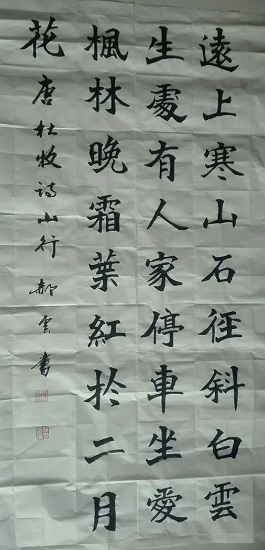 遠上寒山石徑斜白雲
生處有人家停車坐愛
楓林晚霜葉紅於二月
花
唐杜牧詩山行郝雲書